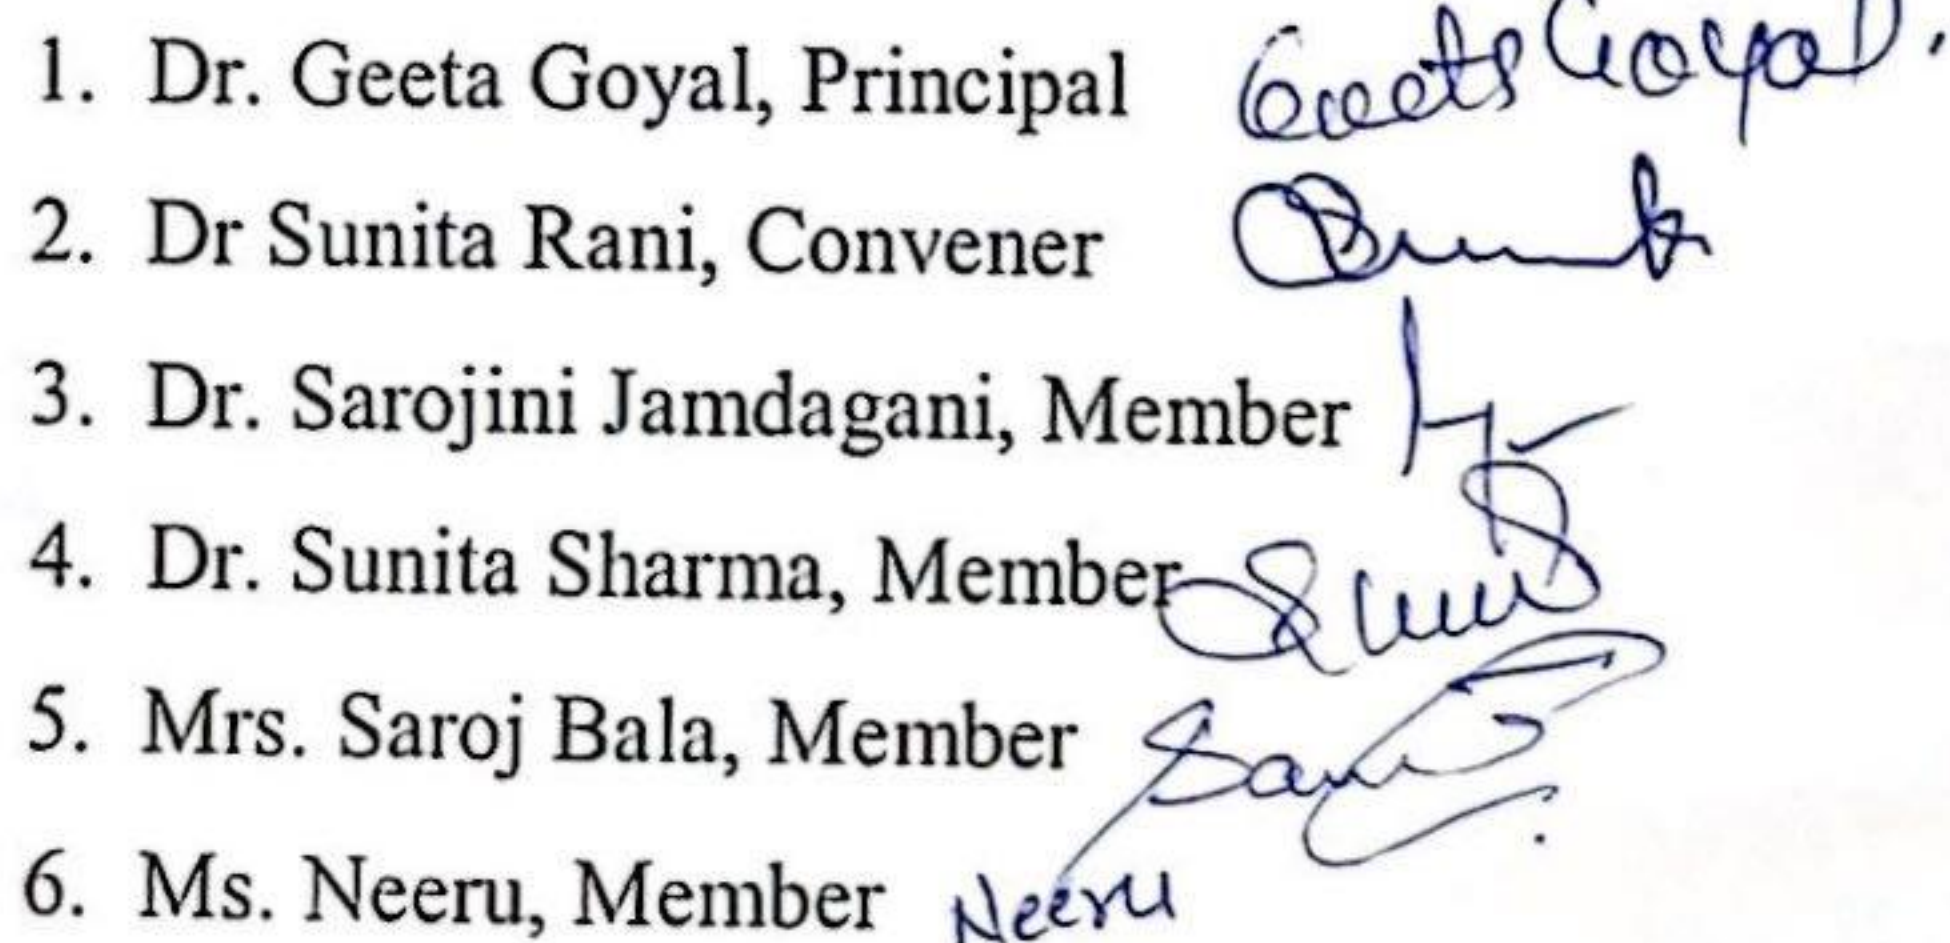 1. Dr. Geeta Goyal, Principal Geeta Goyal.
2. Dr Sunita Rani, Convener
3. Dr. Sarojini Jamdagani, Member
4. Dr. Sunita Sharma, Member
5. Mrs. Saroj Bala, Member
6. Ms. Neeru, Member Neeru